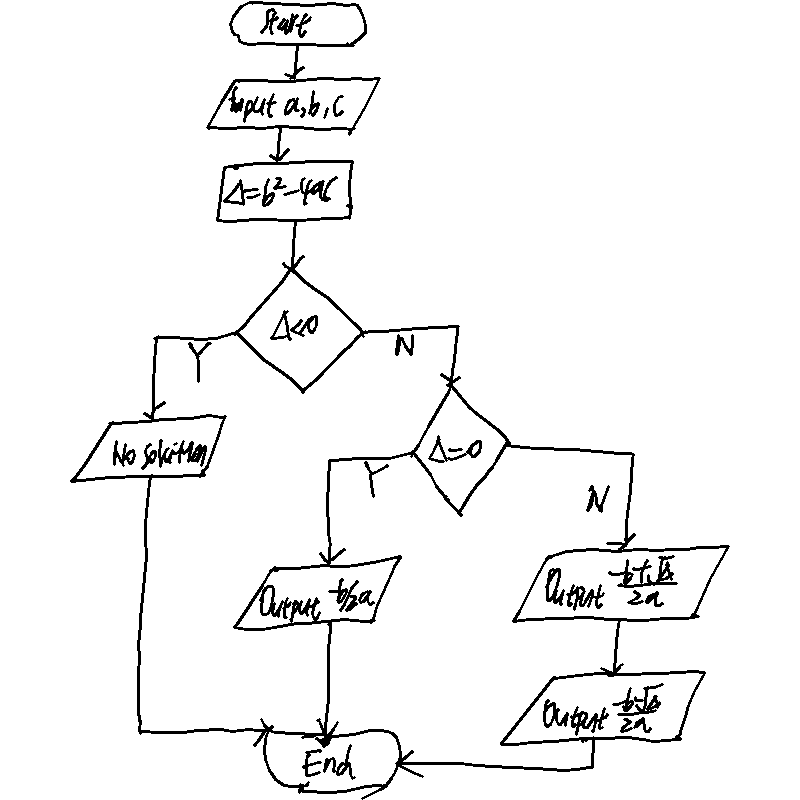 Start
Input a,b,c
Δ=b²-4ac
Δ<0
Y
N
No solution
Δ=0
Y
N
Output -b/2a
Output (-b+√Δ)/2a
Output (-b-√Δ)/2a
End